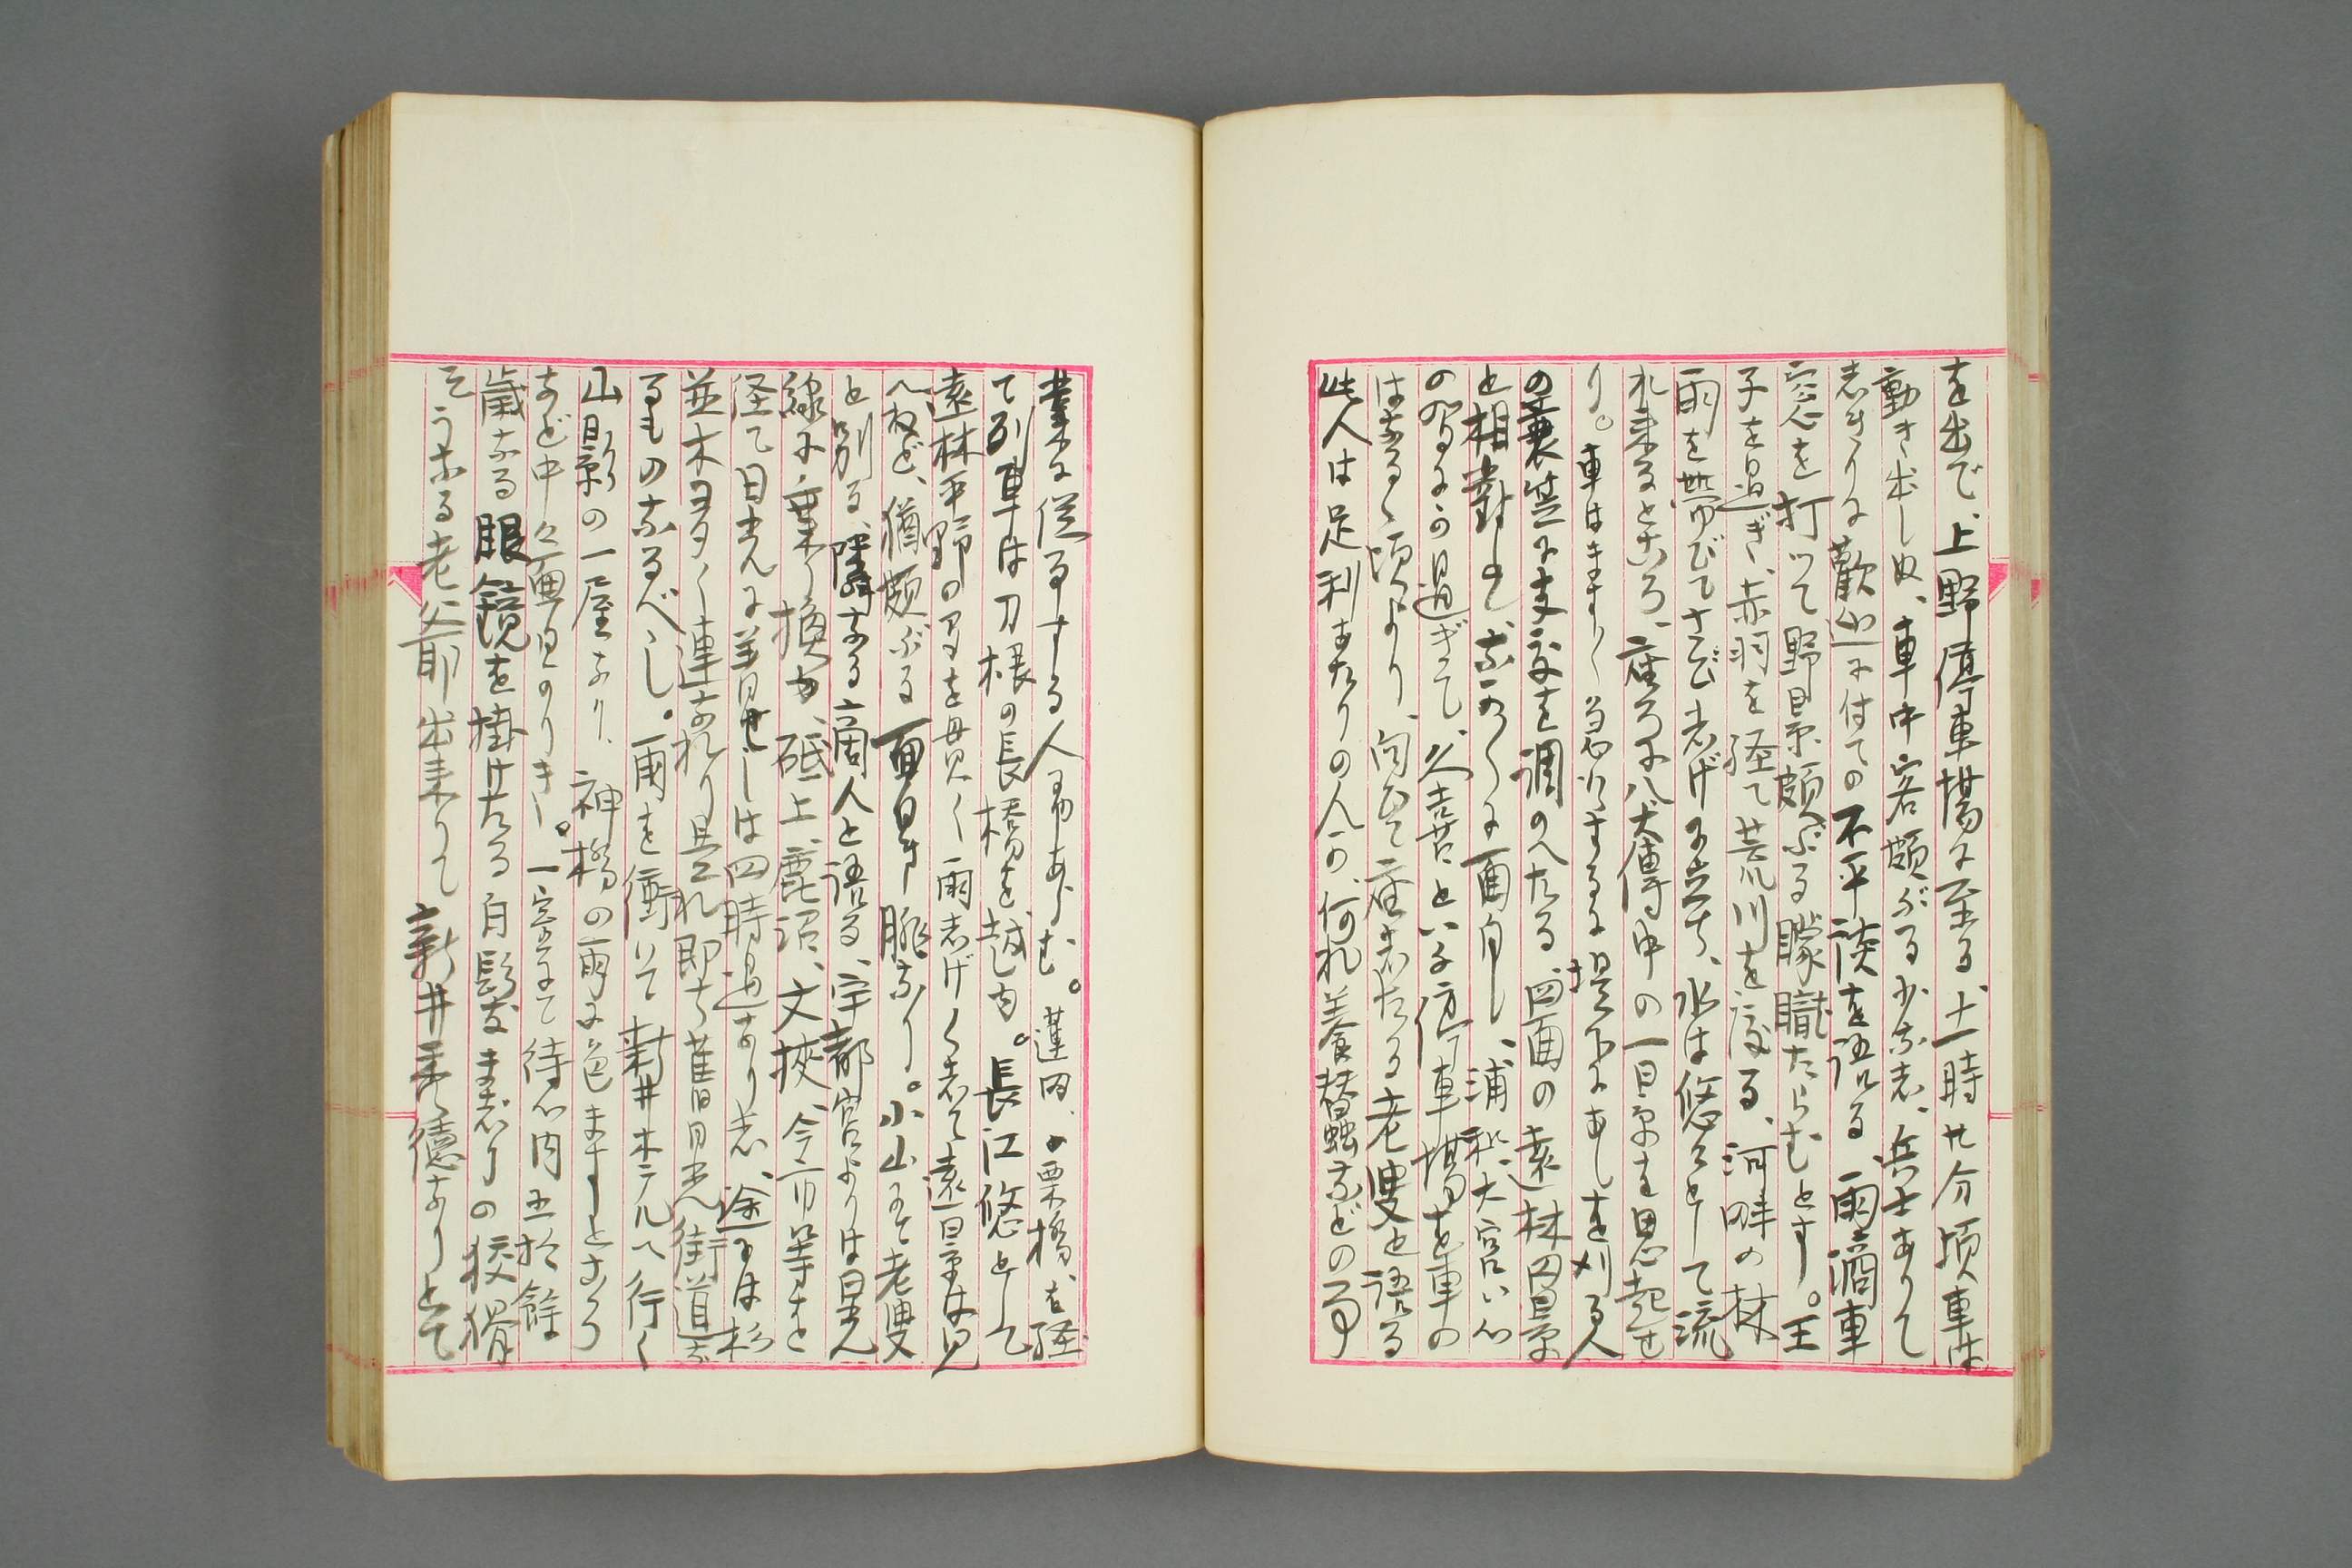 を出で、上野停車場に至る、十一時廿分頃車は
動き出しぬ、車中客頗ぶる少なし、兵士ありて
しきりに歓迎に付ての不平談を語る、雨滴車
窓を打つて野景頗ぶる朦朧たらむとす。王
子を過ぎ、赤羽を経て荒川を渡る、河畔の林
雨を帯びてさびしげに立ち、水は悠々として流
れ来るところ、座ろに八犬傳中の一景を思起せ
り。車はますます急行するに堤下にあしを刈る人
の蓑笠に支度を調のへたる、四面の遠林凶景
と相對して、なかなかに面白し、浦和大宮いつ
の間にか過ぎて、久喜といふ停車場を車の
はなるゝ頃より、向ひて座したる老叟と語る
此人は足利あたりの人か、何れ養蚕などの事
業に従事する人ならむ。蓮田、栗橋を経
て列車は刀根の長橋を越ゆ。長江悠として
遠林平野の間を貫く、雨しげくして遠景は見
へねど、猶頗ぶる面白き眺なり。小山にて老叟
と別る、隣なる商人と語る、宇都宮よりは日光
線に乗り換ゆ、砥上、鹿沼、文挾、今市等を
経て日光に着せしは四時過なりし、途には杉
並木多く連なれり是れ即ち舊日光街道な
るものなるべし。雨を衝いて新井ホテルへ行く
山影の一屋なり、神橋の雨に色ますところ
など中々面白かりき。一室にて待つ内五拾餘
歳なる眼鏡を掛けたる白髪まじりの狡猾
そうなる老父爺出来りて新井秀徳なりとて